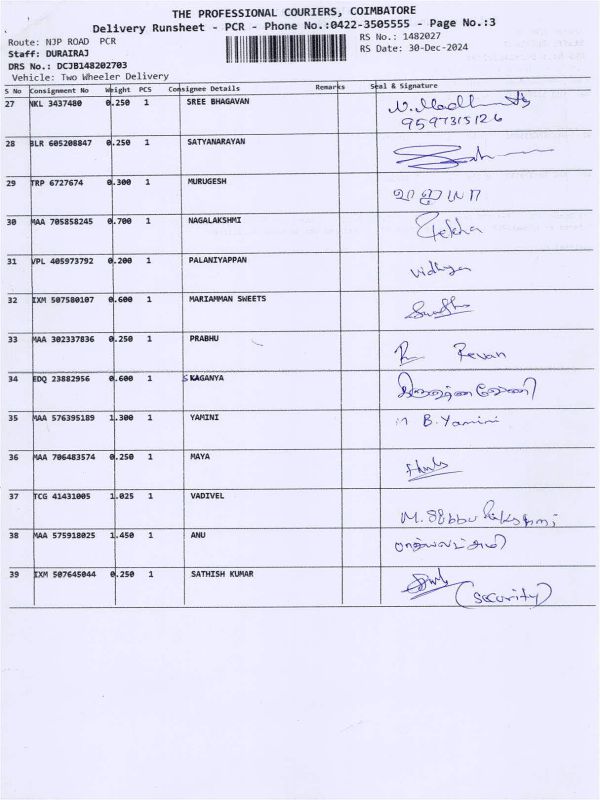 THE PROFESSIONAL COURIERS, COIMBATORE
Delivery Runsheet - PCR - Phone No.:0422-3505555 - Page No.:3
Route: NJP ROAD PCR
RS No.: 1482027
Staff: DURAIRAJ
RS Date: 30-Dec-2024
DRS No.: DCJB148202703
Vehicle: Two Wheeler Delivery
S No Consignment No Weight PCS Consignee Details Remarks Seal & Signature
27 NKL 3437480 0.250 1 SREE BHAGAVAN
9597315126
28 BLR 605208847 0.250 1 SATYANARAYAN
29 TRP 6727674 0.300 1 MURUGESH
30 MAA 705858245 0.700 1 NAGALAKSHMI
31 VPL 405973792 0.200 1 PALANIYAPPAN
vidhya
32 IXM 507580107 0.600 1 MARIAMMAN SWEETS
33 MAA 302337836 0.250 1 PRABHU
Revan
34 EDQ 23882956 0.600 1 SKAGANYA
35 MAA 576395189 1.300 1 YAMINI B. Yamini
36 MAA 706483574 0.250 1 MAYA
37 TCG 41431005 1.025 1 VADIVEL
38 MAA 575918025 1.450 1 ANU
39 IXM 507645044 0.250 1 SATHISH KUMAR
(security)